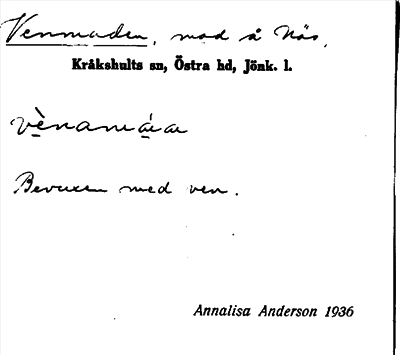 Venmaden, mad å Näs,
Kråkshults sn, Östra hd, Jönk. l.
vènamáa
Bevuxen med ven.
Annalisa Anderson 1936